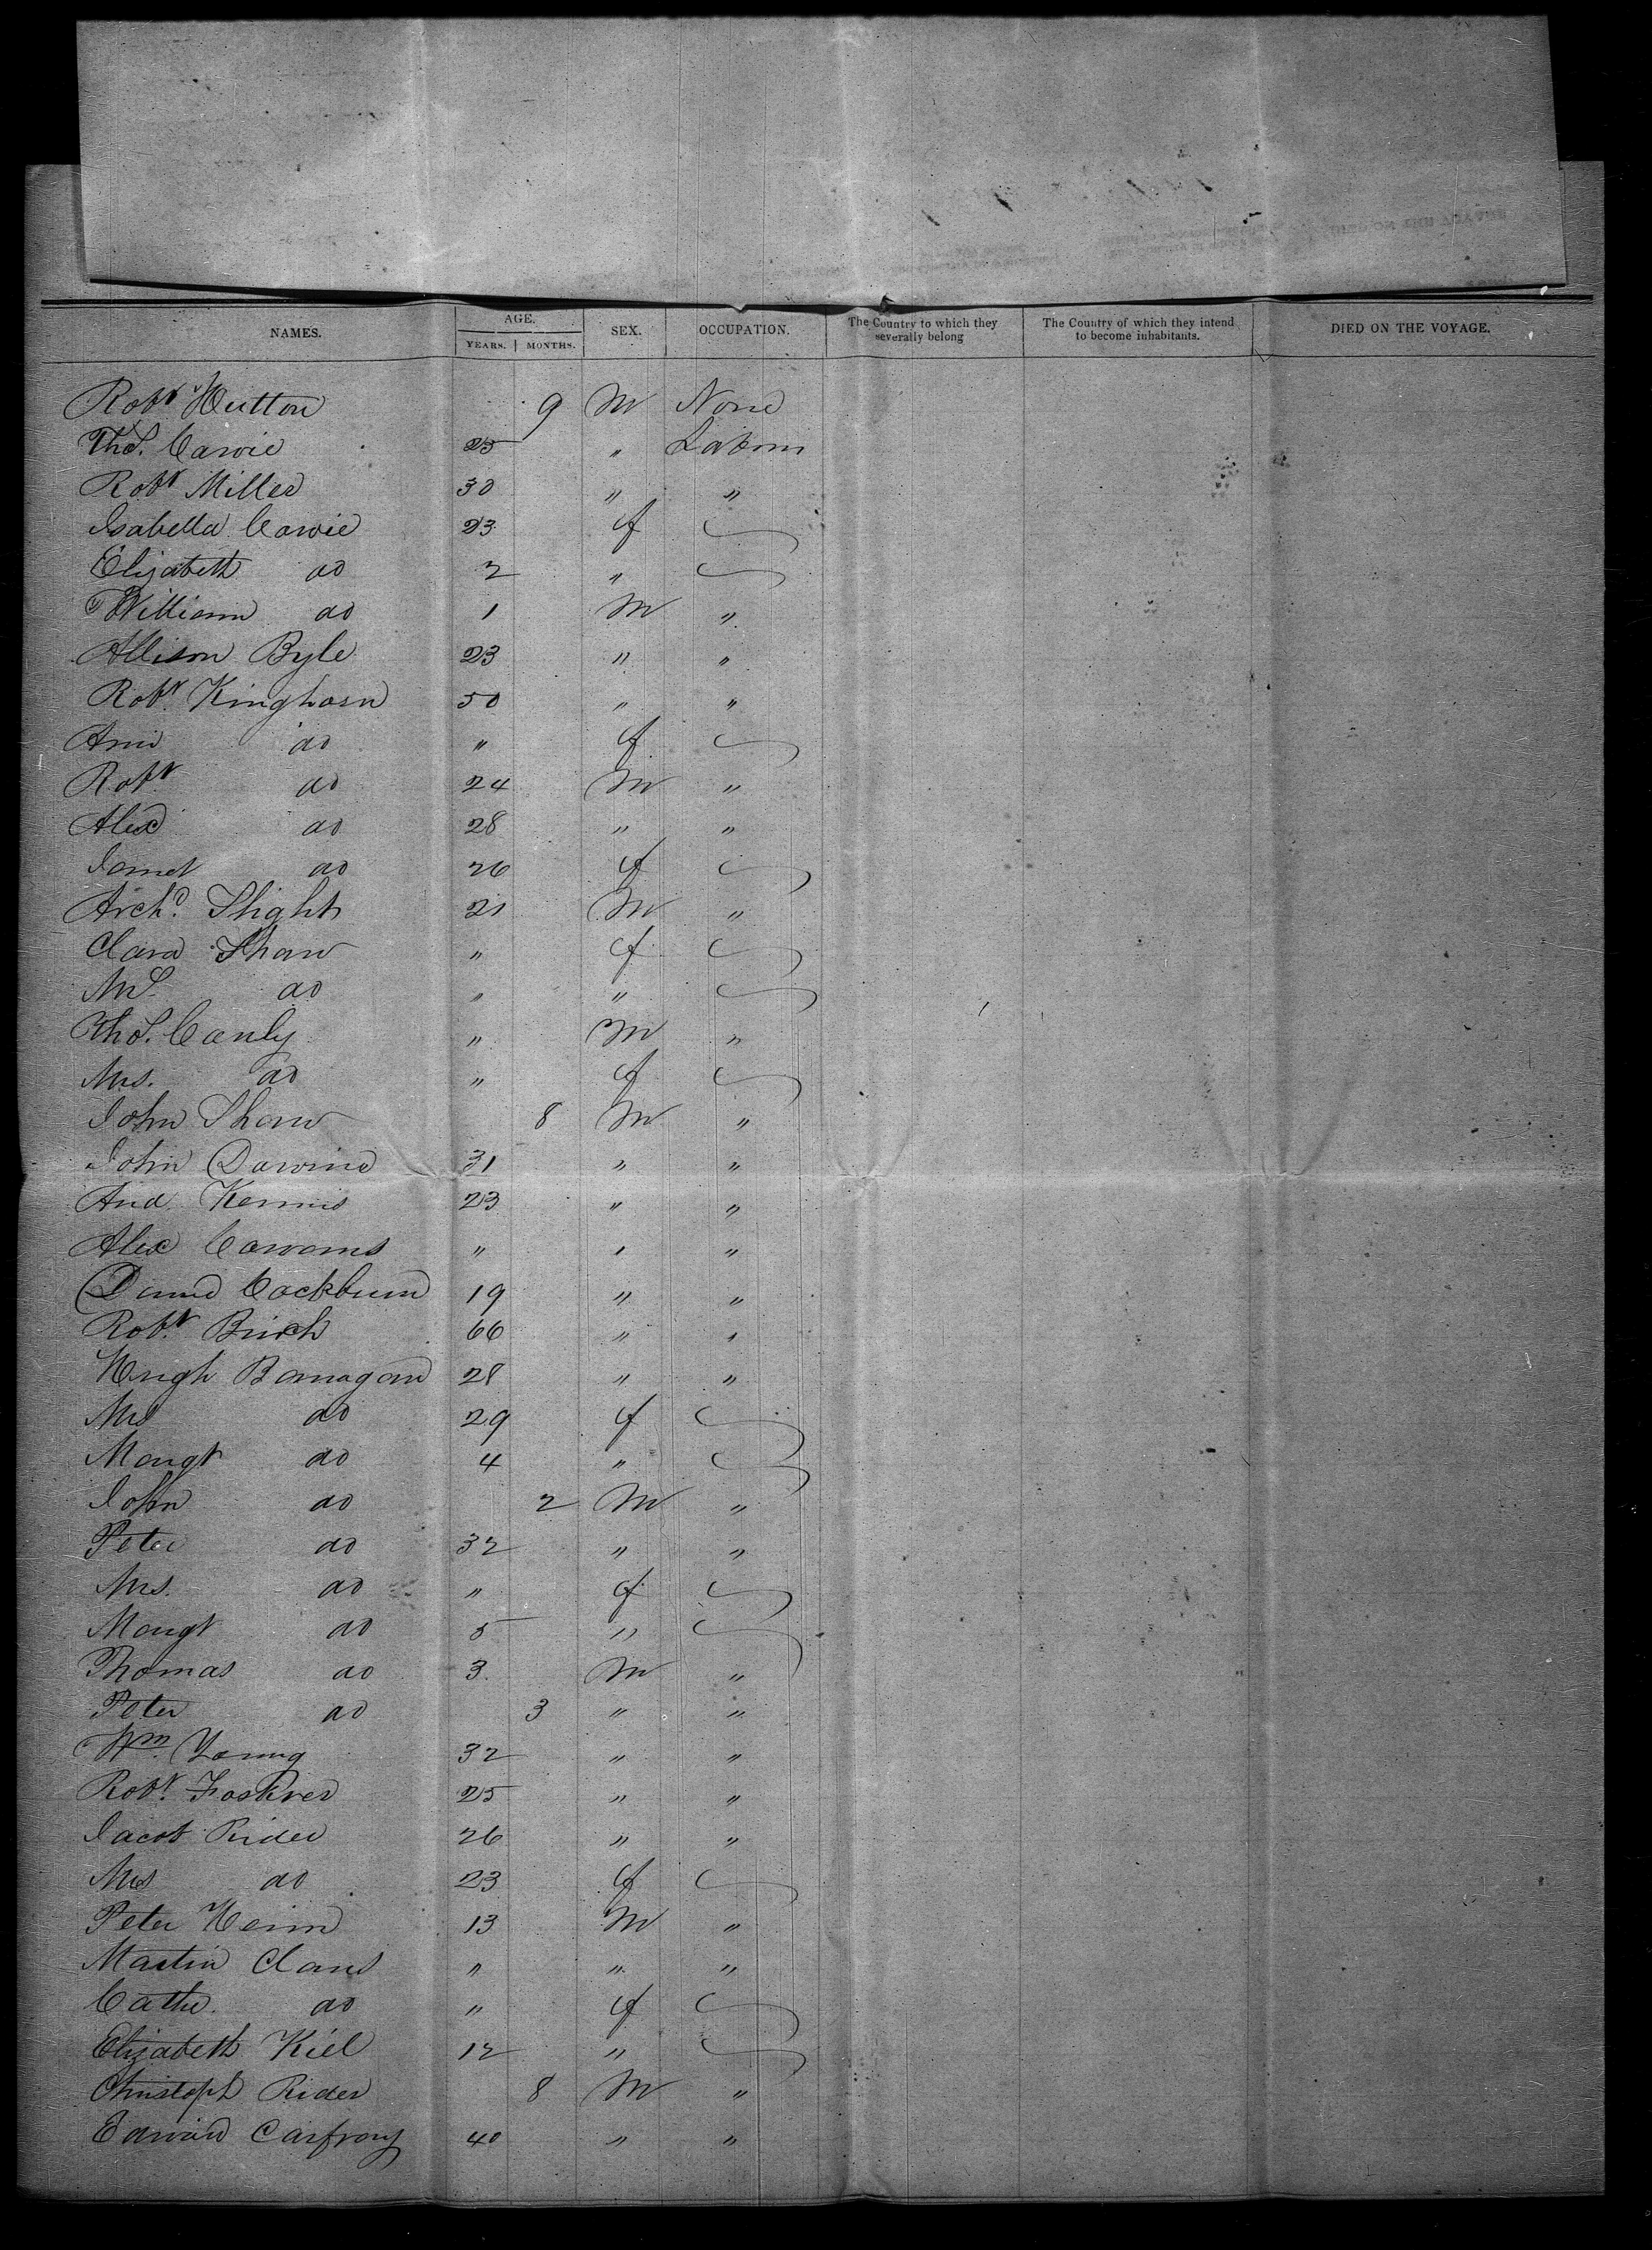 NAMES. AGE. YEARS. MONTHS. SEX. OCCUPATION. The Country to which they severally belong The Country of which they intend to become inhabitants. DIED ON THE VOYAGE.
Robt Hutton 9 M None
Thos. Cawie 25 " Labour
Robt Miller 30 " "
Isabella Cawie 23 f
Elizabeth do 2 "
William do 1 M "
Allison Byle 23 " "
Robt. Kinghorn 50 " "
Ann do " f
Robt do 24 M "
Alex do 28 " "
Janet do 26 f
Archd. Slight 21 M "
Clara Shaw " f
Mrs. do " "
Thos. Canly " M "
Mrs. do " f
John Shaw 8 M "
John Dawine 31 " "
And. Kennis 23 " "
Alex Cawans " " "
David Cockburn 19 " "
Robt. Birch 66 " "
Hugh Banagan 28 " "
Mrs do 29 f
Margt do 4 "
John do 2 M "
Peter do 32 " "
Mrs. do " f
Margt do 5 "
Thomas do 3. M "
Peter do 3 " "
Wm. Young 32 " "
Robt. 25 " "
Jacob Rider 26 " "
Mrs do 23 f
Peter Heim 13 M "
Martin Claus " " "
Cathe. do " f
Elizabeth Kiel 12 "
Christoph Rider 8 M "
Edward Carfray 40 " "